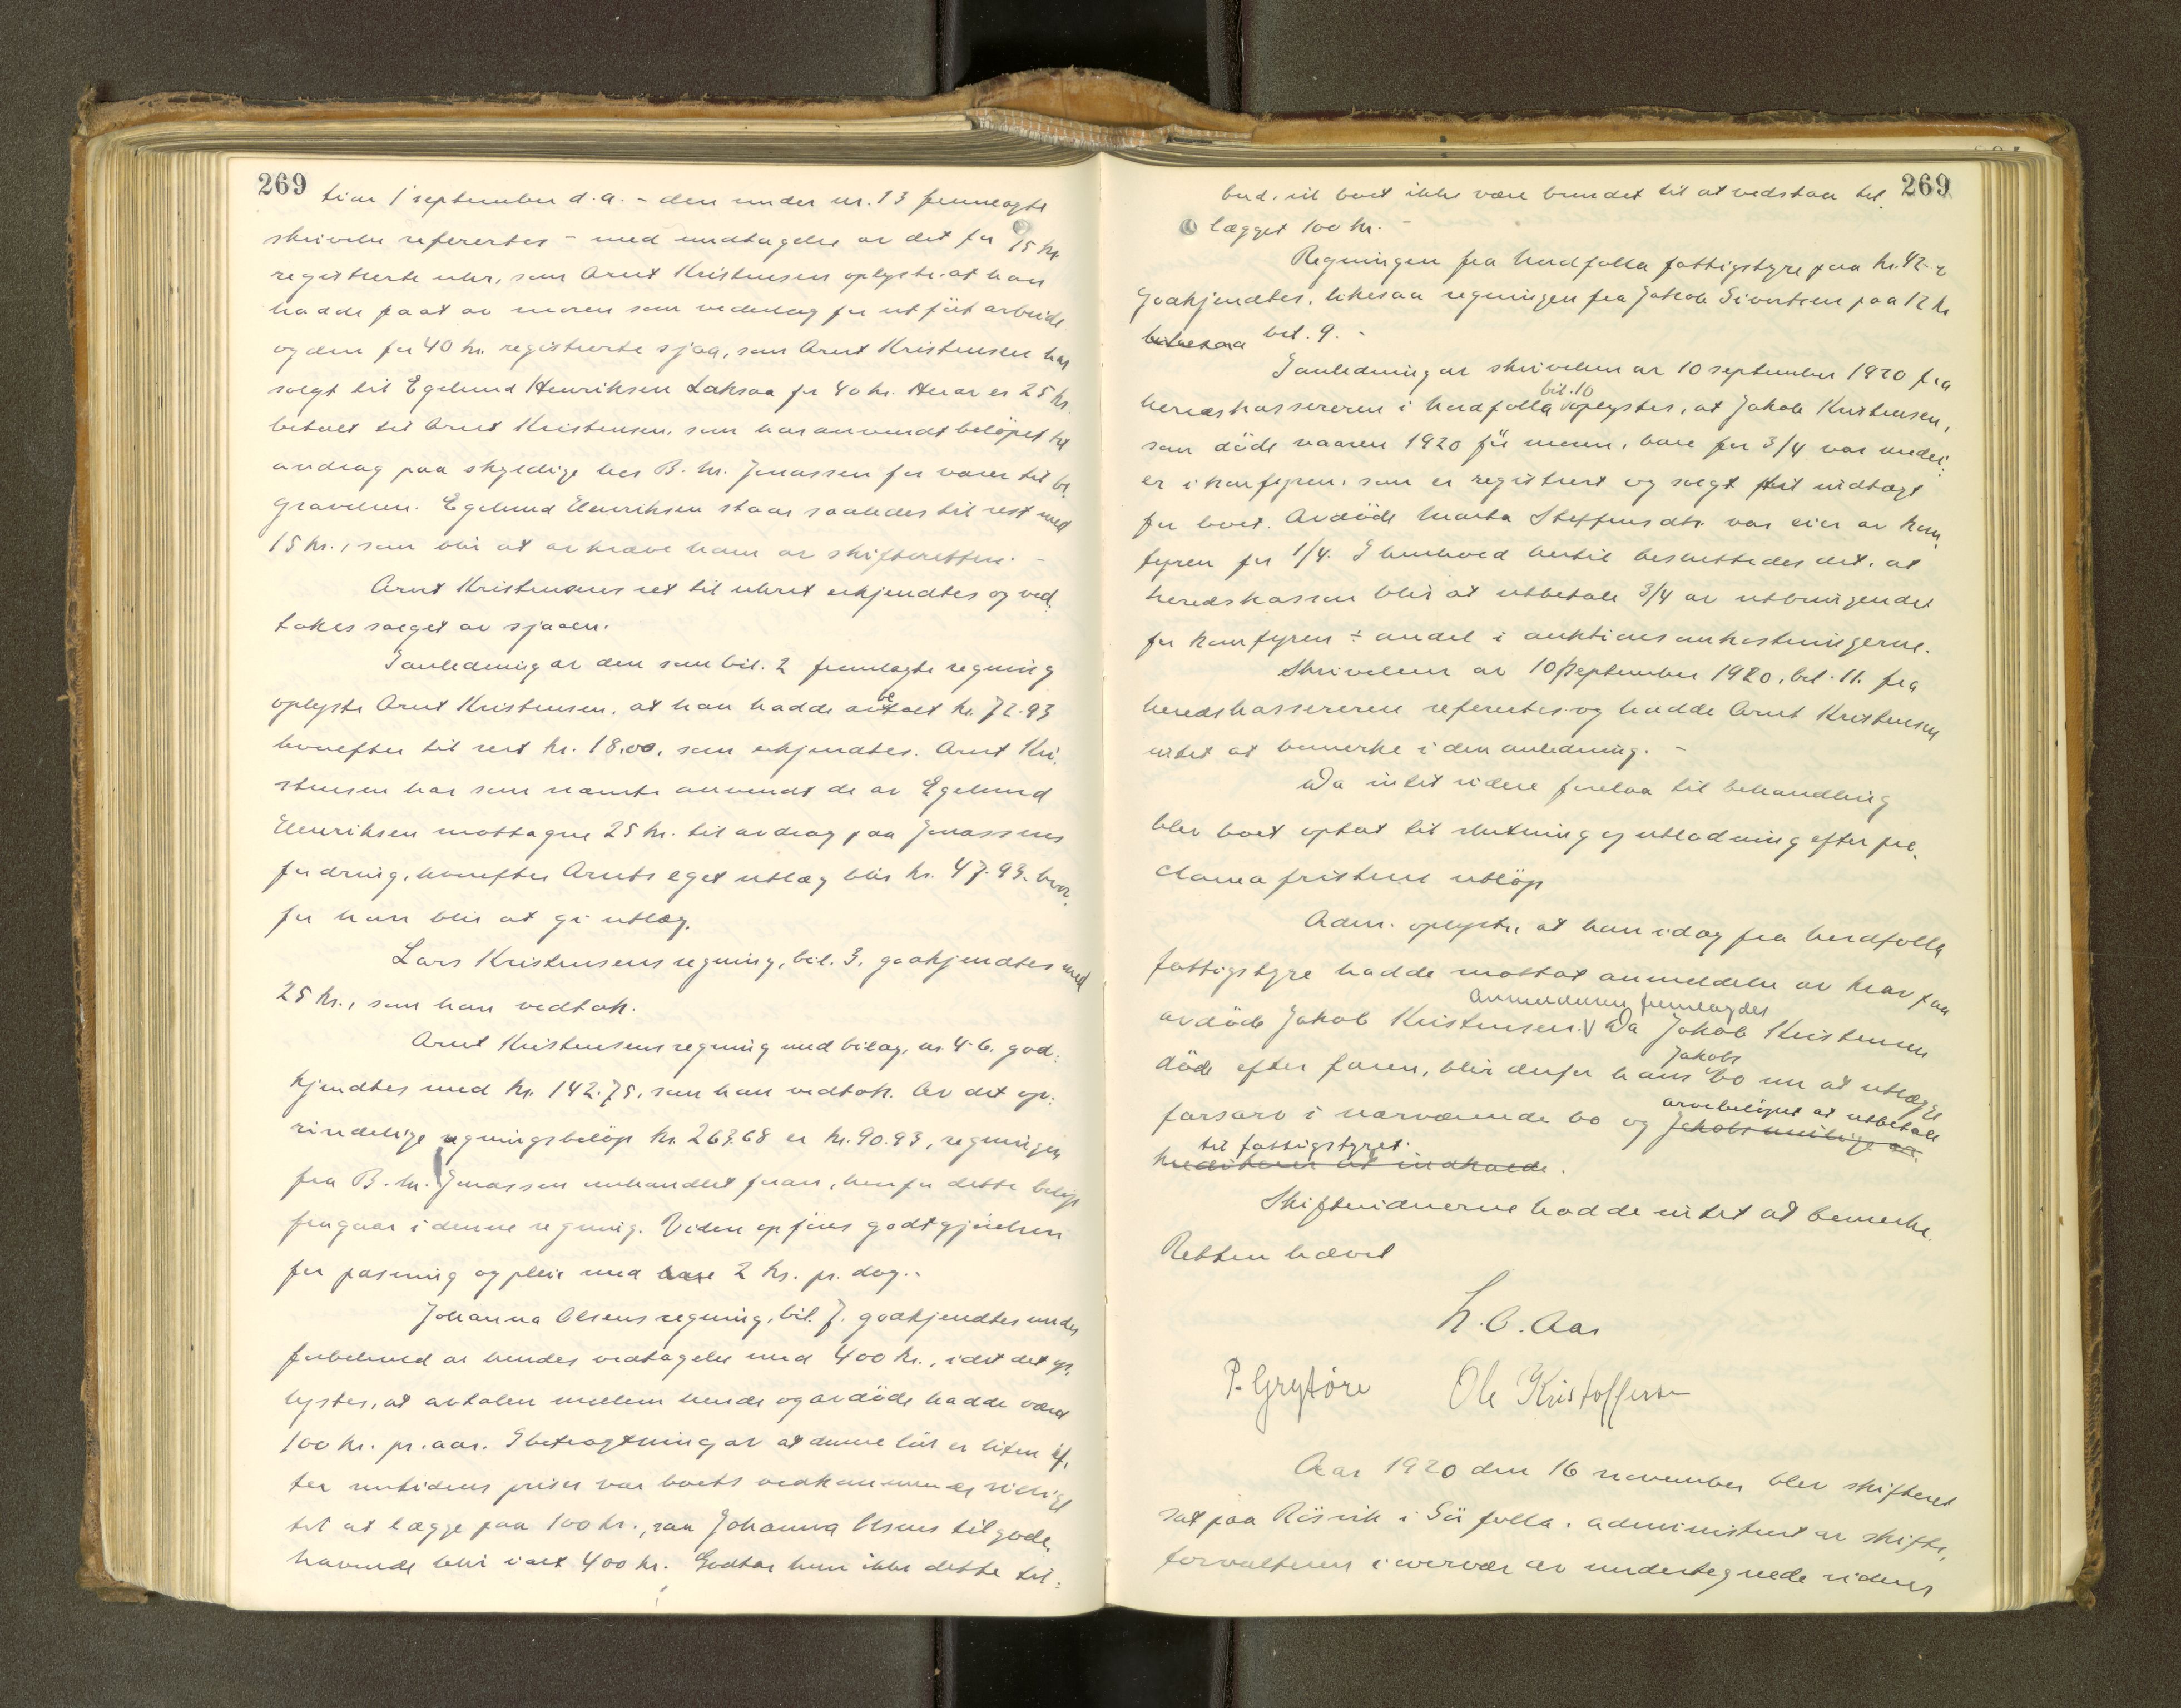 269
tion 1 september d.a. - den under nr. 13 fremlagte
skrivelse refertes - med undtagelse av det for 15 kr.
registrerte uhr, som Arnt Kristensen oplyste, at han
hadde faat av moren som vederlag for utført arbeide
og den for 40 kr. registrerte sjaa, som Arnt Kristensen har
solgt til Egelund Henriksen Laksaa for 40 kr. Herav er 25 kr.
betalt til Arnt Kristensen, som har anvendt beløpet til
avdrag paa skyldige hos B. M. Jonassen for varer til be-
gravelsen. Egelund Henriksen staar saaledes til rest med
15 kr., som blir at avkræve ham av skifteretten. -
Arnt Kristensens ret til uhret erkjendtes og ved-
tokes salget av sjaaen.
I anledning av den som bil. 2 fremlagte regning
oplyste Arnt Kristensen, at han hadde betalt kr. 72.93
hvorefter til rest kr. 18.00, som erkjendtes. Arnt Kri-
stensen har som nævnte anvendt de av Egelund
Henriksen mottagne 25 kr. til avdrag paa Jonassens
fordring, hvorefter Arnts eget utlæg blir kr. 47.93. hvor-
for han blir at gi utlæg.
Lars Kristensens regning, bil. 3, godkjendtes med
25 kr., som han vedtok.
Arnt Kristensens regning med bilag, nr. 4-6. god-
kjendtes med kr. 142.75, som han vedtok. Av det op-
rindelige regningsbeløp kr. 263.68 er kr. 90.93, regningen
fra B. M. Jonassen omhandlet foran, hvorfor dette beløp
fragaar i denne regning. Viden opføres godtgjørelsen
for pasning og pleie med bare 2 kr. pr. dag. -
Johanna Olsens regning, bil. 7. godkjendtes under
forbehold av hendes vedtagelse med 400 kr., idet det op-
lystes, at avtalen mellem hende og avdøde hadde været
100 kr. pr. aar. I betragtning av at denne løn er liten ef-
ter nutidens priser var boets vedkommende villige
til at lægge paa 100 kr., saa Johanna Olsens tilgode-
havende blir i alt 400 kr. Godtar hun ikke dette til-
269
bud, vil boet ikke være bundet til at vedstaa til-
lægget 100 kr. -
Regningen fra Nordfolla fattigstyre paa kr. 42.-
godkjendtes, likesaa regningen fra Jakob Sivertsen paa 12 kr
bil. 9. -
I anledning av skrivelsen av 10 september 1920 fra
bil. 10
herredskassereren i Nordfolla oplystes, at Jakob Kristensen,
som døde vaaren 1920 før moren, bare for 3/4 var medei-
er i komfyren, som er registrert og solgt
for boet. Avdøde Marta Steffensdtr. var eier av kom-
fyren for 1/4. I henhold hertil besluttedes det, at
herredskassen blir at utbetale 3/4 av utbringendet
for komfyren ÷ andel i auktionsomkostningerne.
Skrivelsen av 10 september 1920, bil. 11. fra
herredskassereren refertes og hadde Arnt Kristensen
intet at bemerke i den anledning. -
Da intet videre forelaa til behandling
blev boet optat til slutning og utlodning efter pro-
clamafristens utløp
Adm. oplyste, at han idag fra Nordfolla
fattigstyre hadde mottat anmeldelse av krav paa
Anmeldelsen fremlagdes
avdøde Jakob Kristensen. Da Jakob Kristensen
Jakobs
døde efter faren, blir derfor hans bo nu at utlægge
arvebeløpet at utbetale
farsarv i nærværende bo og
til fattigstyret.
kreditorer at indkalde.
Skiftevidnerne hadde intet at bemerke.
Retten hævet
H. O. Aas
P. Grytøre Ole Kristoffersen
Aar 1920 den 16 november blev skifteret
sat paa Røsvik i Sørfolla, administrert av skifte-
forvalteren i overvær av undertegnede vidner